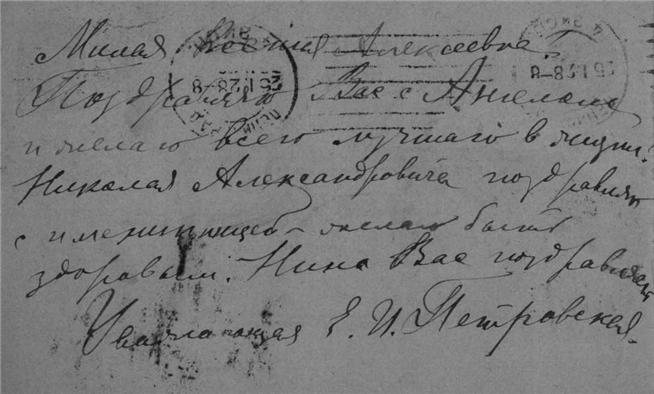 Милая Ксения Алексеевна,
Поздравляю Вас с Ангелом
и желаю всего лучшаго в жизни.
Николая Александровича поздравляю
с именинницей – желаю быть
здоровым. Нина Вас поздравляет
Уважающая Е. И. Петровская.